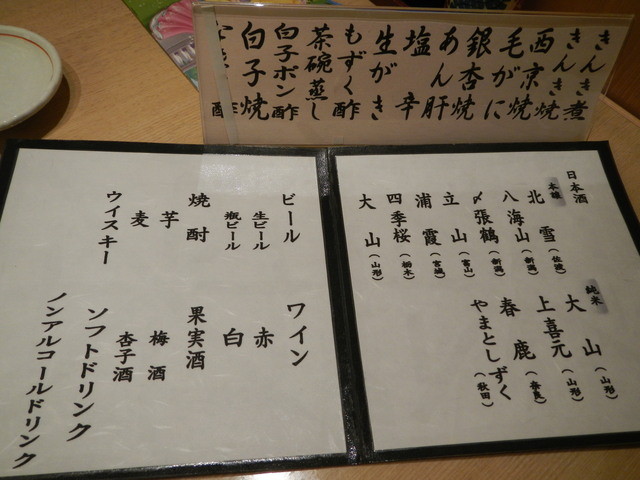 きんき煮
きんき焼
西京焼
毛がに
銀杏焼
あん肝
塩辛
生がき
もずく酢
茶碗蒸し
白子ポン酢
白子焼
酢
日本酒
本醸
北雪(佐渡)
八海山(新潟)
〆張鶴(新潟)
立山(富山)
浦霞(宮城)
四季桜(栃木)
大山(山形)
純米
大山(山形)
上喜元(山形)
春鹿(奈良)
やまとしずく(秋田)
ビール
生ビール
瓶ビール
焼酎
芋
麦
ウイスキー
ワイン
赤
白
果実酒
梅酒
杏子酒
ソフトドリンク
ノンアルコールドリンク